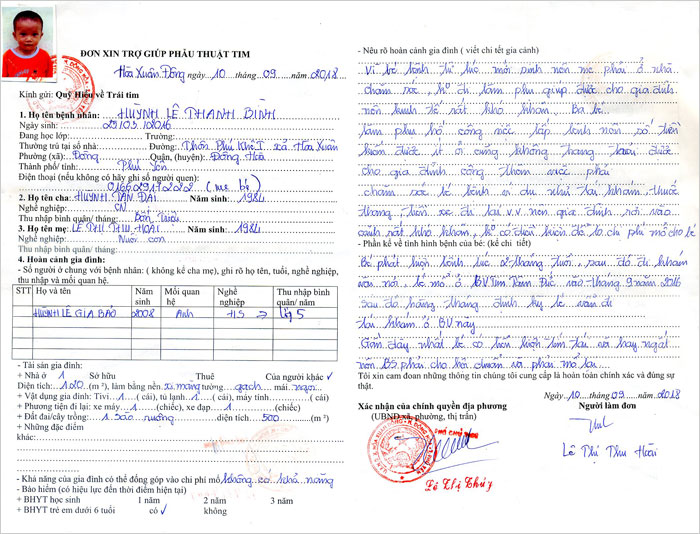 ĐƠN XIN TRỢ GIÚP PHẪU THUẬT TIM
Hòa Xuân Đông ngày 10 tháng 09 năm 2018
Kính gửi: Quỹ Hiểu về Trái tim
1. Họ tên bệnh nhân: HUỲNH LÊ THANH BÌNH
Ngày sinh: 29/03/2016
Đang học lớp: Trường:
Thường trú tại số nhà: Đường: Thôn Phú Khê I xã Hòa Xuân
Phường (xã): Đông Quận, (huyện): Đông Hòa
Thành phố/ tỉnh: Phú Yên
Điện thoại (nếu không có hãy ghi số người quen):
01662917222 (mẹ bé)
2. Họ tên cha: HUỲNH TẤN ĐẠI Năm sinh: 1984
Nghề nghiệp: CN
Thu nhập bình quân/ tháng: Bốn Triệu
3. Họ tên mẹ: LÊ THỊ THU HOÀI Năm sinh: 1984
Nghề nghiệp: Nuôi con
Thu nhập bình quân/ tháng:
4. Hoàn cảnh gia đình:
- Số người ở chung với bệnh nhân: ( không kể cha mẹ), ghi rõ họ tên, tuổi, nghề nghiệp,
thu nhập và mối quan hệ.
STT Họ và tên Năm sinh Mối quan hệ Nghề nghiệp Thu nhập bình quân/ năm
HUỲNH LÊ GIA BẢO 2008 Anh HS lớp 5
- Tài sản gia đình:
+ Nhà ở 1 Sở hữu Thuê Của người khác ✓
Diện tích: 120 (m²), làm bằng nền xi măng tường gạch mái ngói
+ Vật dụng gia đình: Tivi 1 (cái), tủ lạnh 1 (cái), máy tính (cái)
+ Phương tiện đi lại: xe máy 1 (chiếc), xe đạp 1 (chiếc)
+ Đất đai/cây trồng: 1 sào ruộng diện tích: 500 (m²)
+ Những đặc điểm
khác:
- Khả năng của gia đình có thể đóng góp vào chi phí mổ không có khả năng
- Bảo hiểm (có hiệu lực đến thời điểm hiện tại)
+ BHYT học sinh 1 năm 2 năm 3 năm
+ BHYT trẻ em dưới 6 tuổi có ✓ không
- Nêu rõ hoàn cảnh gia đình ( viết chi tiết gia cảnh)
Vì bé bệnh từ lúc mới sinh nên mẹ phải ở nhà
chăm sóc, để đi làm phụ giúp được cho gia đình
nên kinh tế rất khó khăn, Ba bé
làm phụ hồ công việc bấp bênh nên số tiền
kiếm được ít ỏi cũng không trang trải được
cho gia đình cộng thêm việc phải
chăm sóc bé bệnh ví dụ như tái khám, thuốc
thang tiền xe đi lại v.v nên gia đình rơi vào
cảnh rất khó khăn, k có điều kiện để lo chi phí mổ cho bé
- Phần kể về tình hình bệnh của bé: (kể chi tiết)
Bé phát hiện bệnh lúc 2 tháng tuổi, sau đó đi khám
bé mổ ở BV Tim Tâm Đức vào tháng 9 năm 2016
sau đó hàng tháng định kỳ bé vẫn đi
tái khám ở BV này
Gần đây nhất bé có biểu hiện tím tái và hay ngất
nên BS phải cho hội chuẩn và phải mổ lại
Tôi xin cam đoan những thông tin chúng tôi cung cấp là hoàn toàn chính xác và đúng sự
thật.
Ngày 10 / 09 2018
Xác nhận của chính quyền địa phương Người làm đơn
(UBND xã, phường, thị trấn)
PHÓ CHỦ TỊCH
Lê Thị Thu Hoài
Lê Thị Thúy